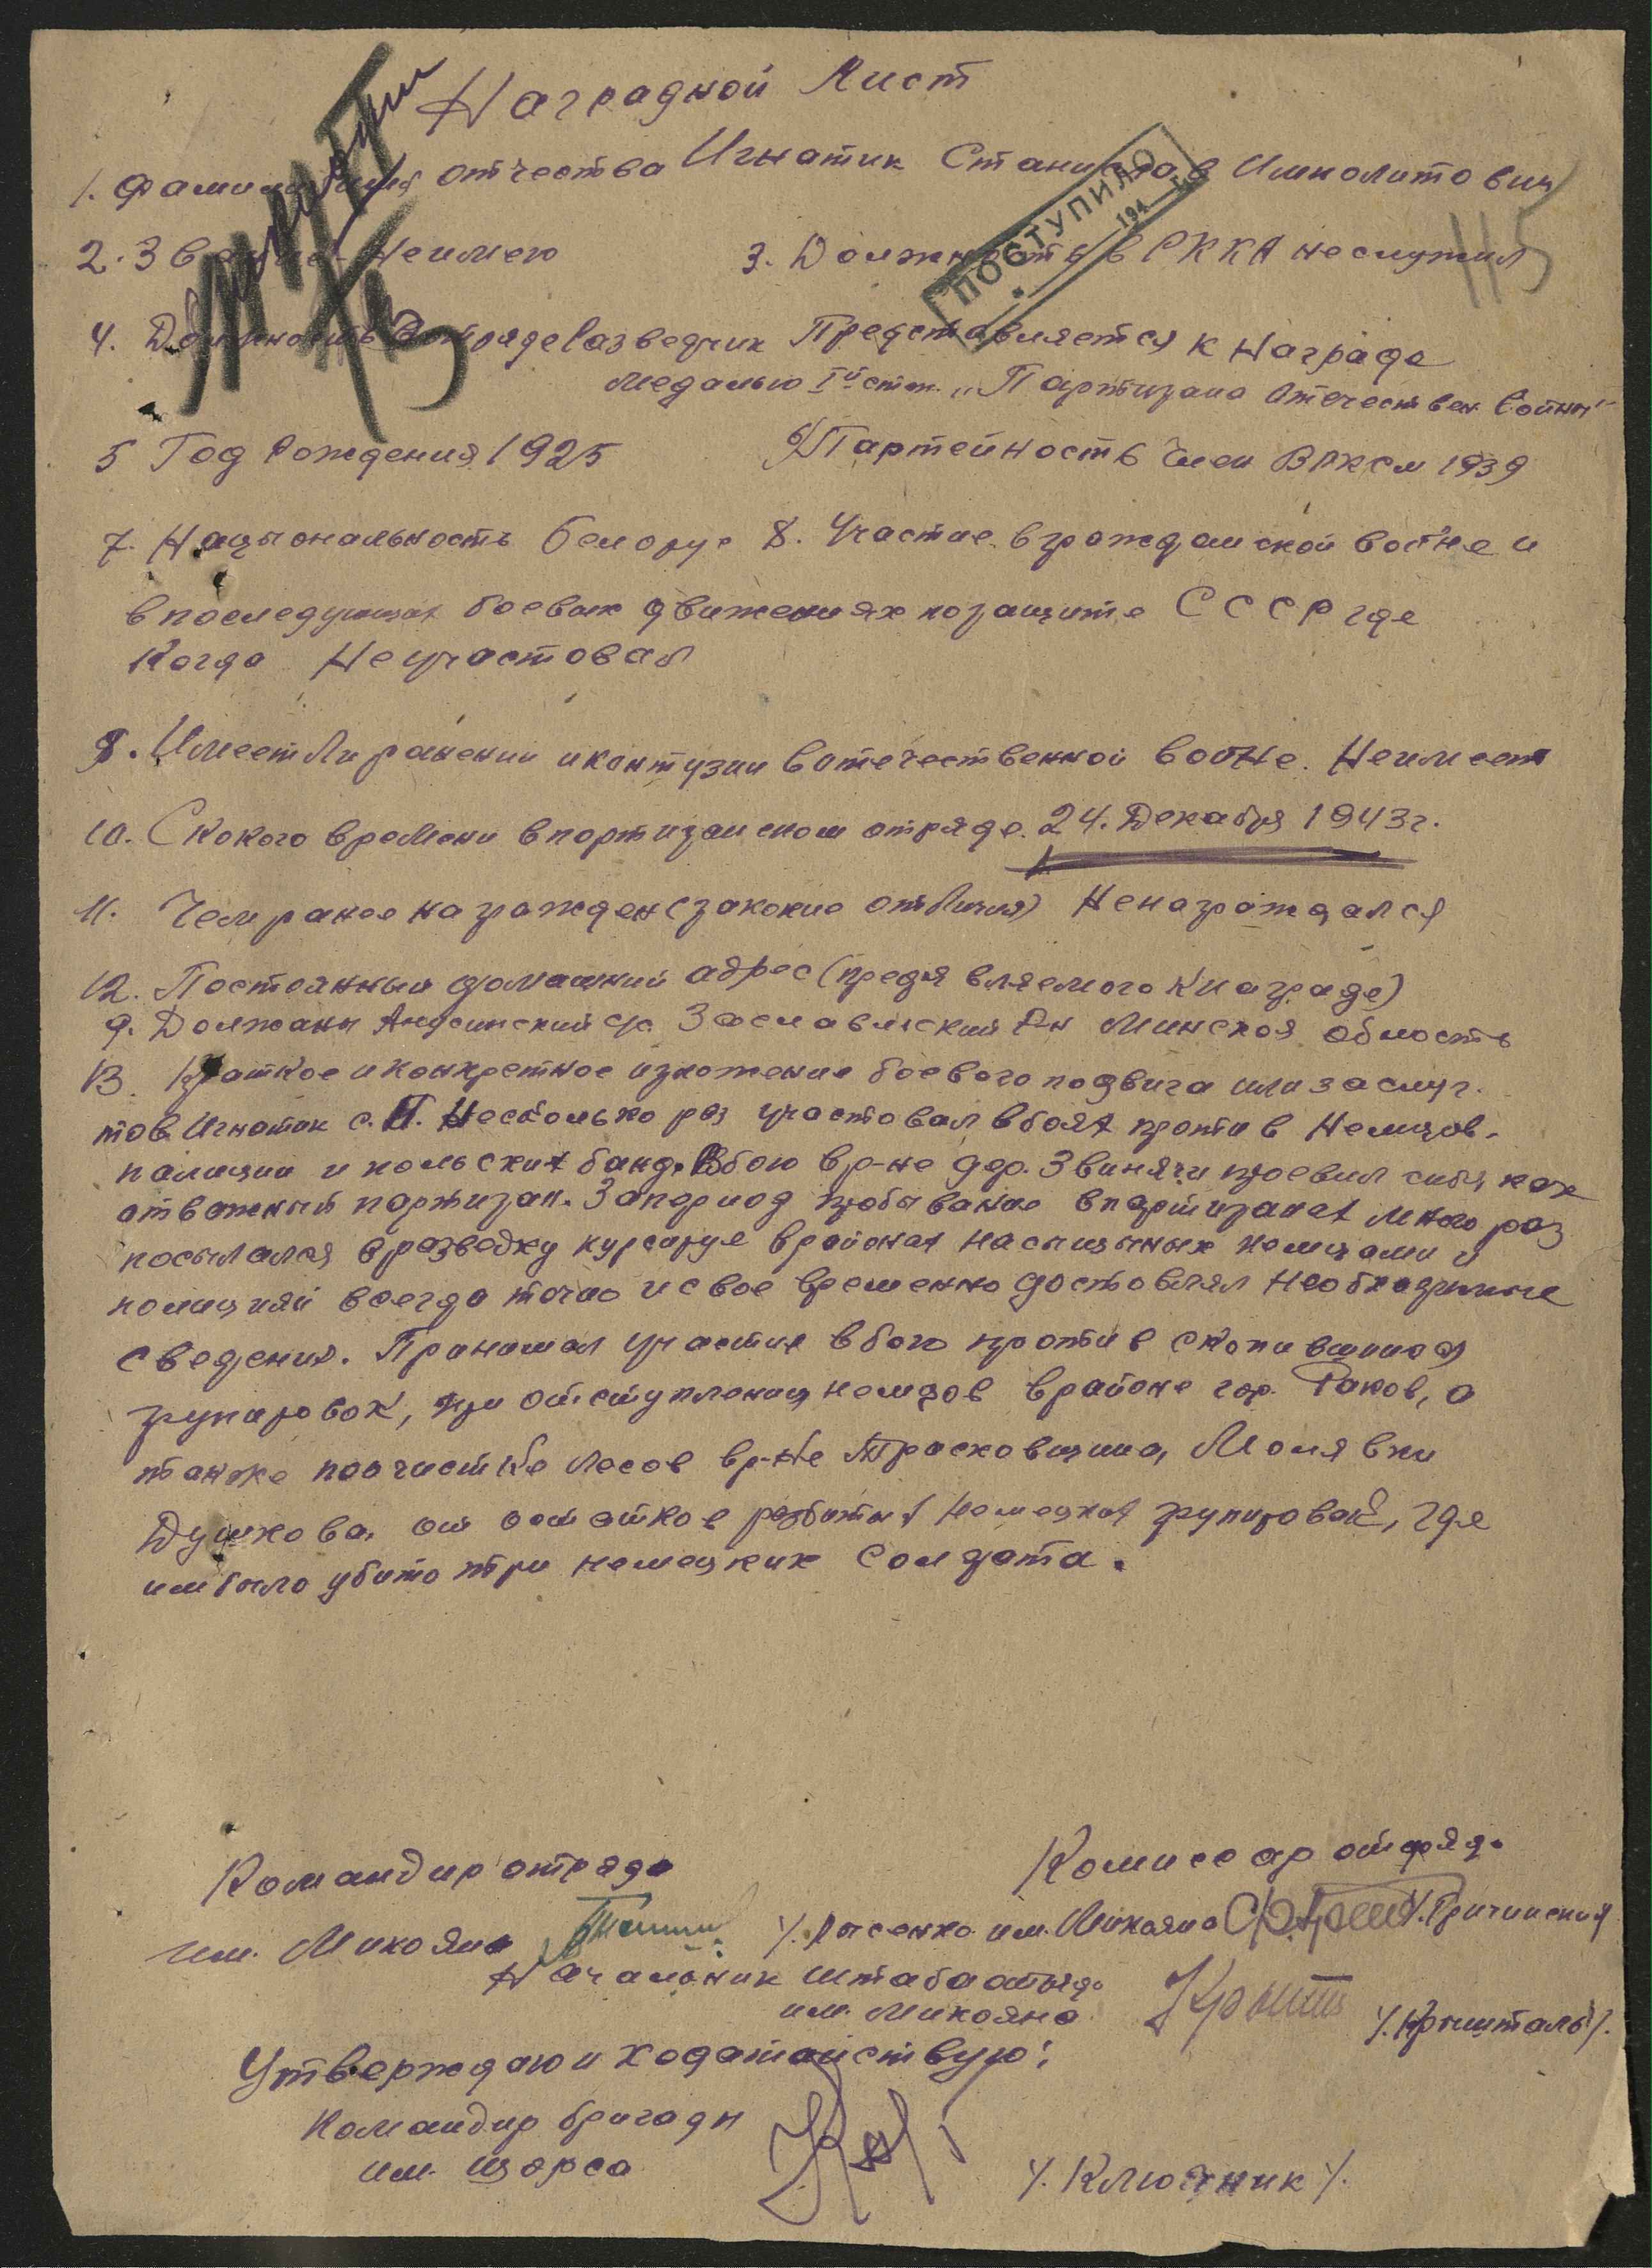 Наградной Лист
1. Фамилия имя отчества Игнатик Станислав Ипполитович
ПОСТУПИЛО
194
115
2. Звание Неимею 3. Должность в РККА неслужил
4. Должность Вотряде Разведчик Представляется к Награде
медалью Iй степ. „Партизана Отечествен. Войны"
5 Год Рождения 1925 6) Партейность Член ВЛКСМ 1939
7. Нацыональность белорус 8. Участие в граждамской войне и
впоследующих боевых движениях позащите СССР где
Когда Неучаствовал
9. Имеет Ли ранении иконтузии вотечественной войне. Неимеет
10. Скокого времени впортизанском отряде. 24. Декабря 1943г.
11. Чем ранее награжден (закокие отличия) Ненаграждался
12. Постоянный домашний адрес (предявляемого Кнаграде)
д. Должаны с/с Заславльский Рн Минской область
13. Краткое иконкретное изложение боевого подвига илизаслуг.
тов. Игнатик С.И. Несколько раз участвовал вбоях против Немцов,
палиции и польских банд. Вбою вр-не дер. Звинячи проевил себя как
отважный партизан. Запериод пробывание впартизанах много раз
посылался вразведку курсируя врайонах насыщыных немцами и
полицияй всегда точно и свое временно достовлял Необходимые
сведения. Принимал участие вбою против скопившиюся
групировок, при отступлении немцов врайоне гор. Раков, а
также поочистке Лесов вр-не Трасковщина, Малявки
Душкова, от остатков разбитых Немецких групировок, где
им было убито три немецких солдата.
Командир отряда Комиссар отряда
им. Микояна /. Лысенко им. Микояна /. Гричинский
Начальник штаба отряда
им. Микояна /. Крышталь /.
Утверждаю и ходатайствую:
Командир бригады
им. Щорса /. Ключник /.